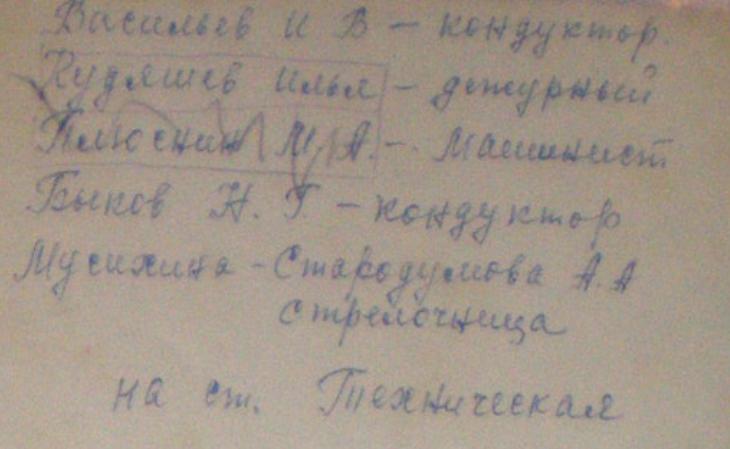 Васильев И В – кондуктор.
Кудяшев Илья – дежурный
Плюснин М. А. – Машинист
Быков Н. Г. – кондуктор
Мусихина – Стародумова А. А
стрелочница
на ст. Техническая